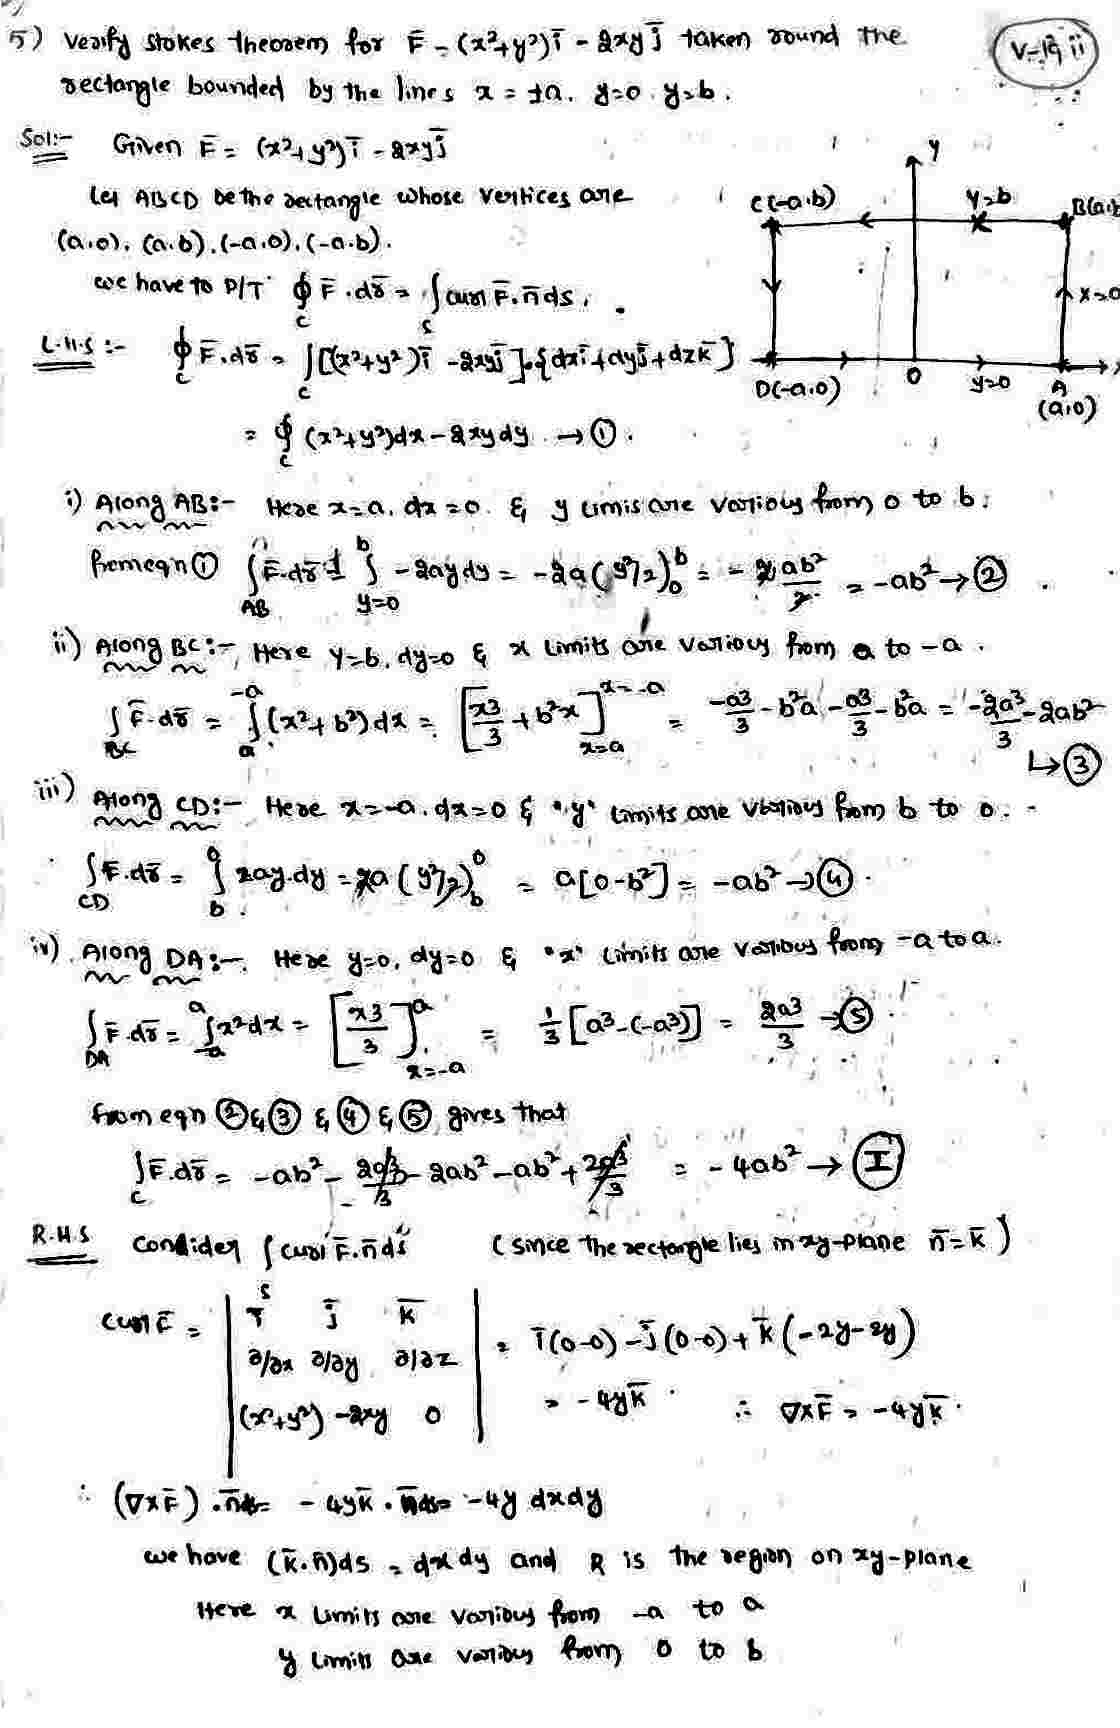 5) Verify Stokes theorem for F̄ = (x²+y²)ī - 2xy j̄ taken round the
rectangle bounded by the lines x = ±a, y=0, y=b.
V-19 ii
Sol:- Given F̄ = (x²+y²)ī - 2xyj̄
Let ABCD be the rectangle whose vertices are
(a,0), (a,b), (-a,0), (-a,b).
we have to P/T ∮_C F̄.dr̄ = ∫_S curl F̄.n̄ds.
y
C(-a,b) y=b B(a,b
x=a
D(-a,0) O y=0 A
(a,0)
L.H.S :- ∮_C F̄.dr̄ = ∫_C [(x²+y²)ī - 2xyj̄].{dxī+dyj̄+dzk̄}
= ∮_C (x²+y²)dx - 2xydy → ①.
i) Along AB:- Here x=a, dx=0. & y limis are varioly from 0 to b.
from eqn ① ∫_AB F̄.dr̄ = ∫_{y=0}^b -2aydy = -2a(y²/2)_0^b = -2ab²/2 = -ab² → ②
ii) Along BC:-, Here y=b, dy=0 & x limits are varioly from a to -a.
∫_BC F̄.dr̄ = ∫_a^{-a} (x²+b²)dx = [x³/3 + b²x]_{x=a}^{x=-a} = -a³/3 - b²a - a³/3 - b²a = -2a³/3 - 2ab²
↳ ③
iii) Along CD:- Here x=-a, dx=0 & "y" limits are varioly from b to 0.
∫_CD F̄.dr̄ = ∫_b^0 2ay.dy = 2a(y²/2)_b^0 = a[0-b²] = -ab² → ④.
iv). Along DA:-. Here y=0, dy=0 & "x" limits are varioly from -a to a.
∫_DA F̄.dr̄ = ∫_{-a}^a x²dx = [x³/3]_{x=-a}^a = 1/3 [a³-(-a³)] = 2a³/3 → ⑤
from eqn ② & ③ & ④ & ⑤ gives that
∫_C F̄.dr̄ = -ab² - 2a³/3 - 2ab² - ab² + 2a³/3 = -4ab² → Ⓘ
R.H.S Consider ∫_S curl F̄.n̄ds (since the rectangle lies in xy-plane n̄=k̄)
curl F̄ = | ī j̄ k̄ | = ī(0-0) - j̄(0-0) + k̄(-2y-2y)
∂/∂x ∂/∂y ∂/∂z
(x²+y²) -2xy 0 = -4yk̄ ∴ ∇×F̄ = -4yk̄.
∴ (∇×F̄).n̄ds = -4yk̄.n̄ds = -4y dxdy
we have (k̄.n̄)ds = dxdy and R is the region on xy-plane
Here x limits are varioly from -a to a
y limits are varioly from 0 to b